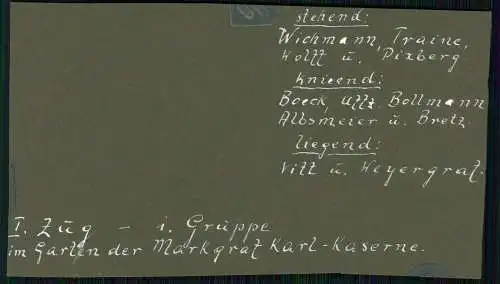 stehend:
Wichmann, Traine,
Wolff u. Pixberg
knieend:
Boeck, Uffz. Bollmann
Albsmeier u. Bretz.
liegend:
Vitt u. Heyergraf.
I. Zug - 1. Gruppe
im Garten der Markgraf Karl-Kaserne.